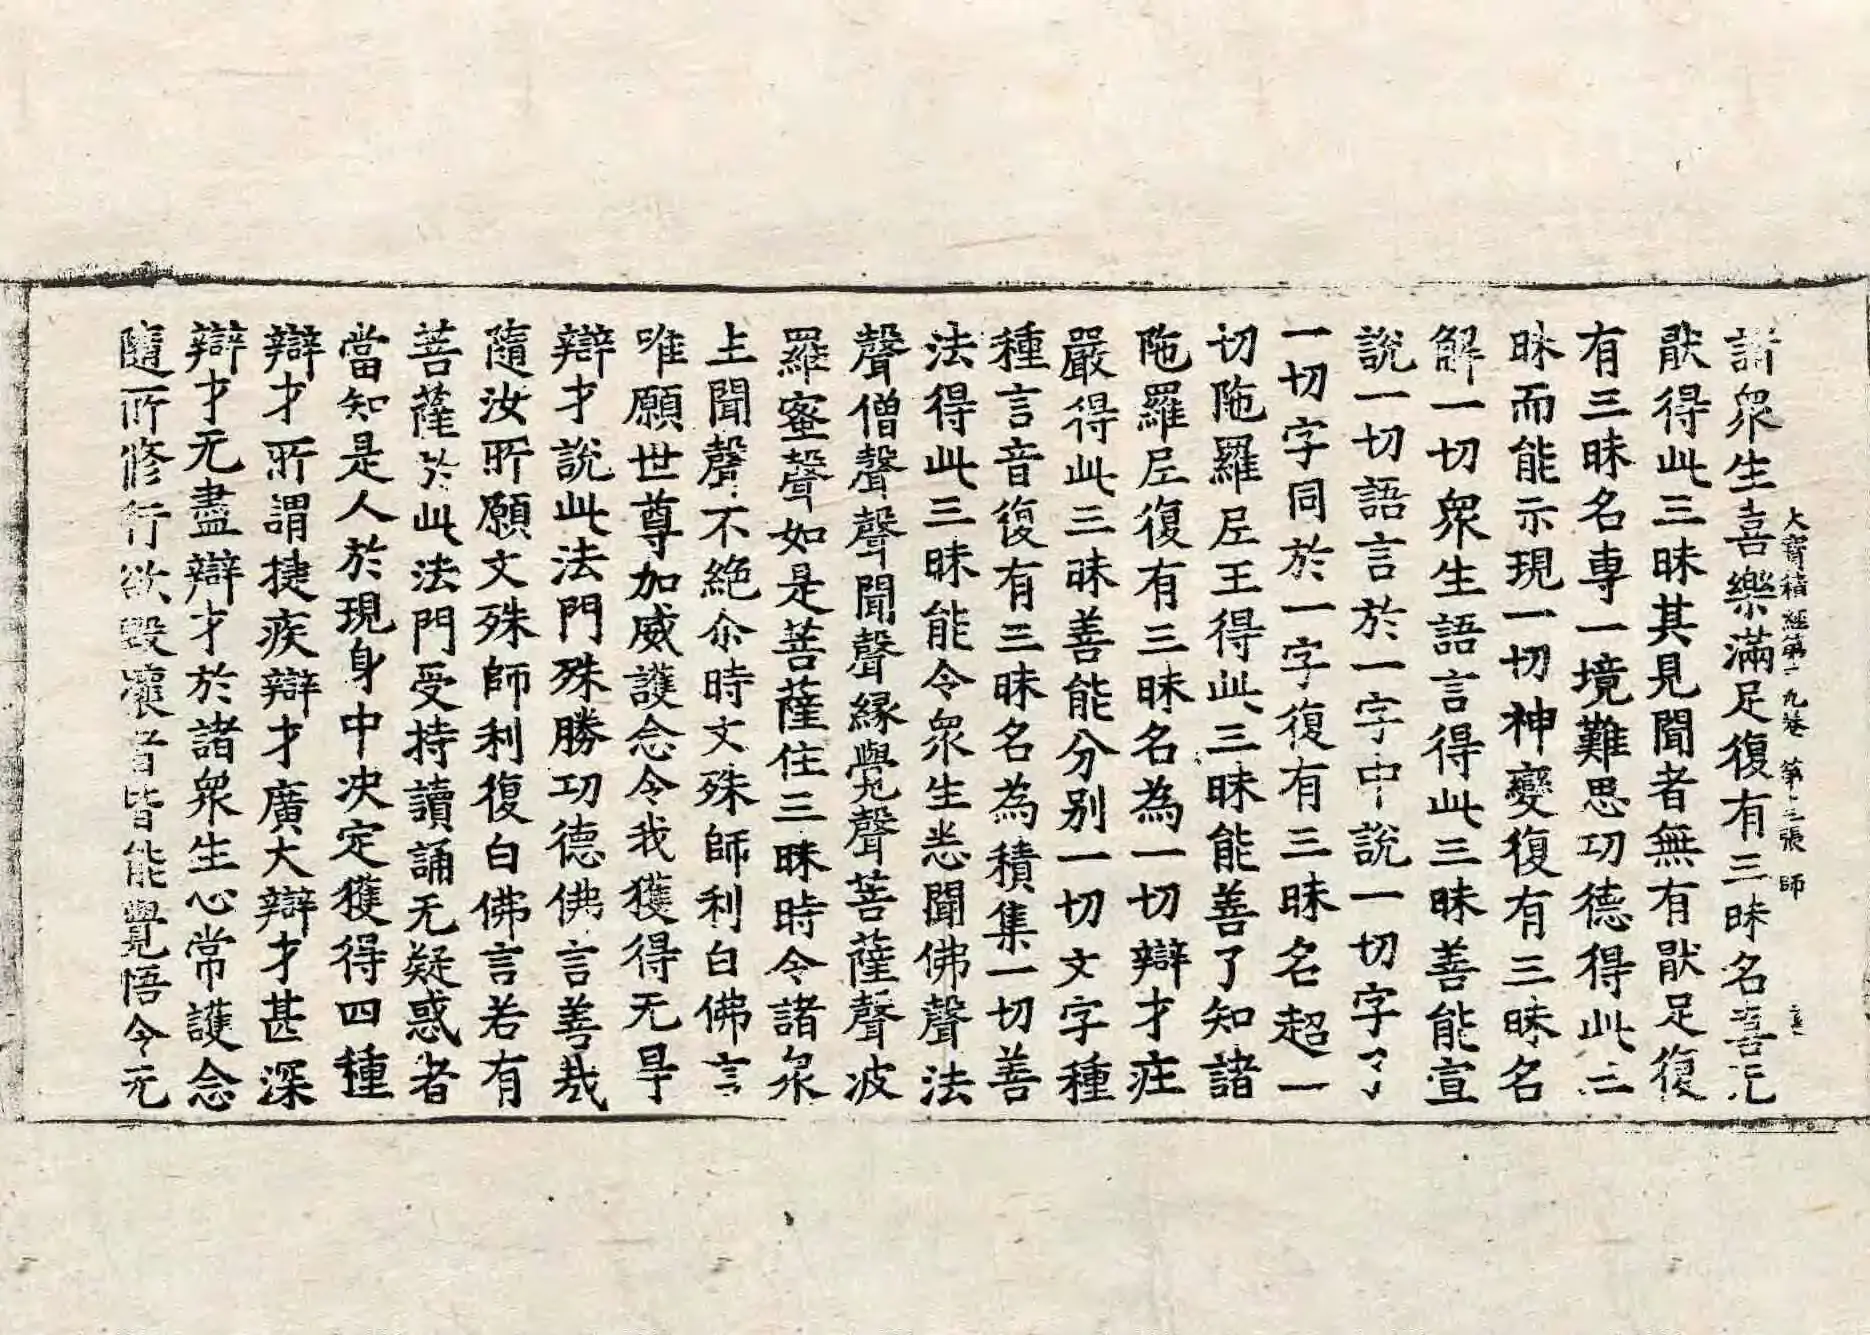 大寶積經第二九卷 第三張 師
諸衆生喜樂滿足復有三昧名喜无
猒得此三昧其見聞者無有猒足復
有三昧名専一境難思功德得此三
昧而能示現一切神變復有三昧名
解一切衆生語言得此三昧善能宣
說一切語言於一字中說一切字了
一切字同於一字復有三昧名超一
切陁羅尼王得此三昧能善了知諸
陁羅尼復有三昧名為一切辯才莊
嚴得此三昧善能分別一切文字種
種言音復有三昧名為積集一切善
法得此三昧能令衆生悉聞佛聲法
聲僧聲聲聞聲縁覺聲菩薩聲波
羅蜜聲如是菩薩住三昧時令諸衆
生聞聲不絶尒時文殊師利白佛言
唯願世尊加威護念令我獲得无㝵
辯才說此法門殊勝功德佛言善哉
隨汝所願文殊師利復白佛言若有
菩薩於此法門受持讀誦无疑惑者
當知是人於現身中决定獲得四種
辯才所謂捷疾辯才廣大辯才甚深
辯才无盡辯才於諸衆生心常護念
隨所修行欲毀壞者皆能覺悟令无